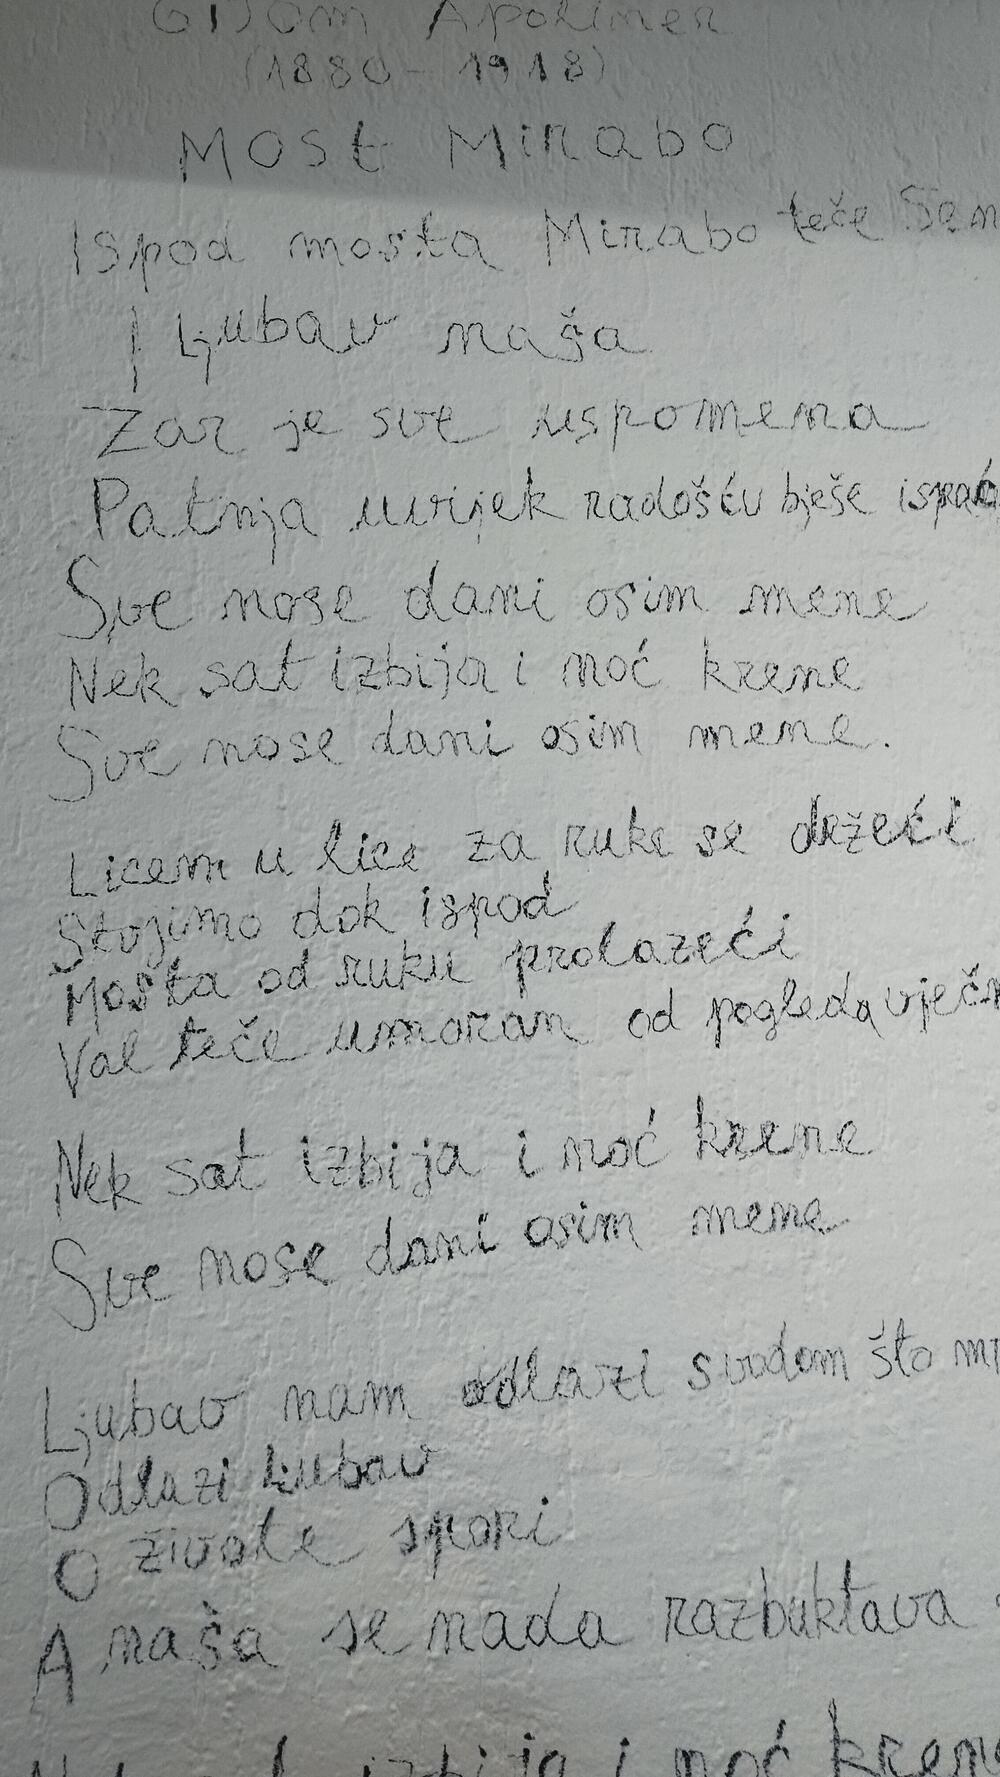 GIJOM Apoliner
(1880-1918)
Most Mirabo
Ispod mosta Mirabo teče Sen
I Ljubav naša
Zar je sve uspomena
Patnja uvijek radošću bješe
Sve nose dani osim mene
Nek sat izbija i noć krene
Sve nose dani osim mene.
Licem u lice za ruke se držeći
Stojimo dok ispod
Mosta od ruku prolazeći
Val teče umoran od pogleda vječn
Nek sat izbija i noć krene
Sve nose dani osim mene
Ljubav nam odlazi s vodom što
Odlazi ljubav
O živote spori
A naša se nada razbuktava
izbija i noć krene